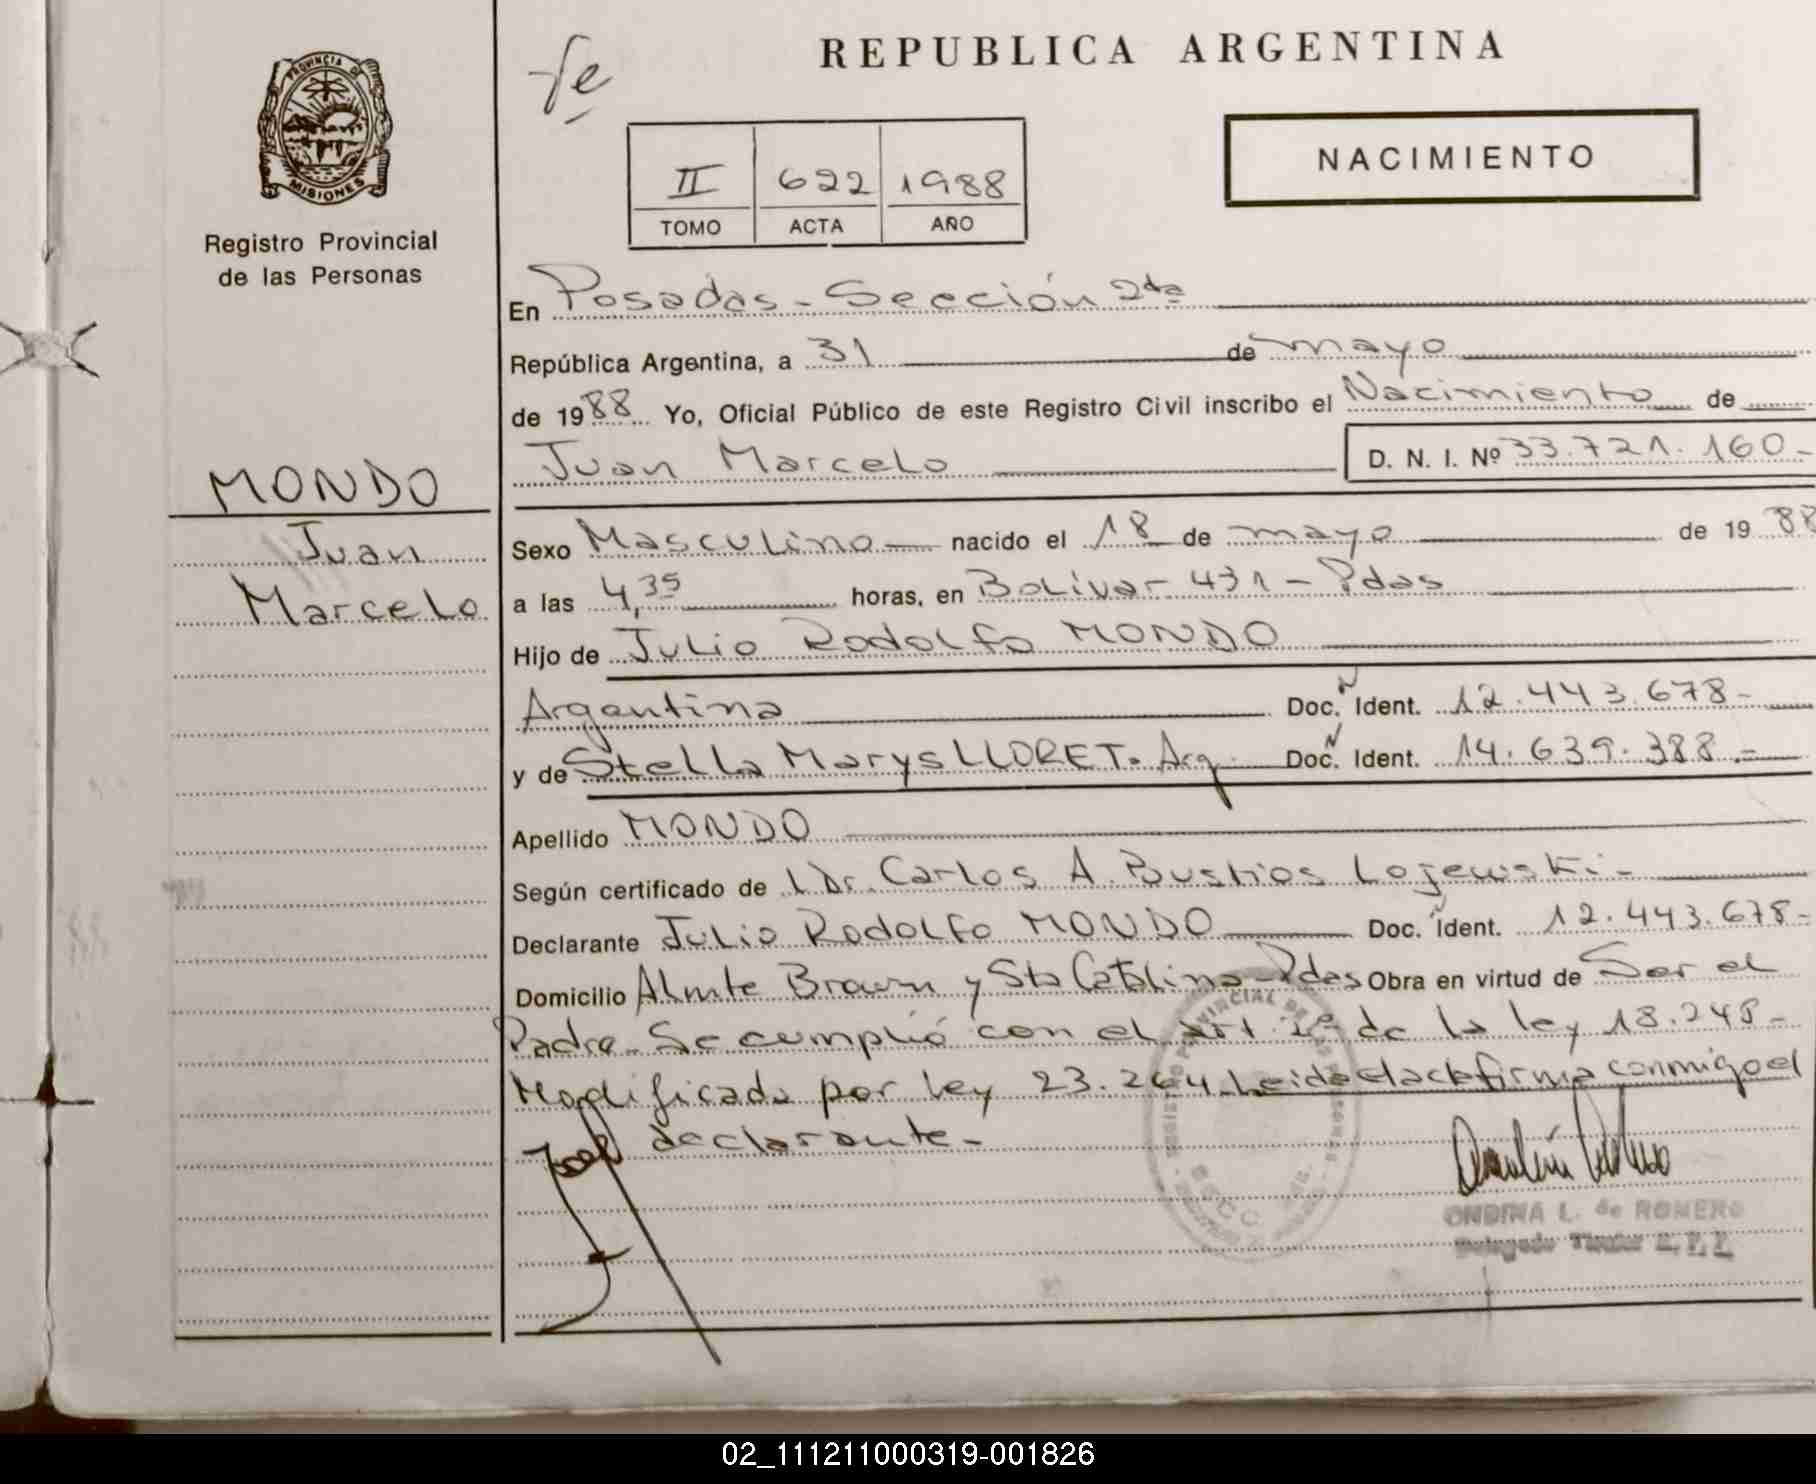 REPUBLICA ARGENTINA
PROVINCIA DE
MISIONES
Registro Provincial
de las Personas
II 622 1988
TOMO ACTA AÑO
NACIMIENTO
En Posadas - Sección 2da
República Argentina, a 31 de mayo
de 1988 Yo, Oficial Público de este Registro Civil inscribo el Nacimiento de
Juan Marcelo D. N. I. Nº 33.721.160-
MONDO
Juan
Marcelo
Sexo Masculino nacido el 18 de mayo de 1988
a las 4,35 horas, en Bolívar 431 - Pdas
Hijo de Julio Rodolfo MONDO
Argentina Doc. Ident. 12.443.678-
y de Stella Marys LLORET. Arg. Doc. Ident. 14.639.388.-
Apellido MONDO
Según certificado de Dr. Carlos A. Bustios Lojewski -
Declarante Julio Rodolfo MONDO Doc. Ident. 12.443.678-
Domicilio Almte Brown y Sta Catalina - Pdas Obra en virtud de Ser el
Padre - Se cumplió con el art de la ley 18.248-
Modificada por ley 23.264. Leida el acta firma conmigo el
declarante -
ONDINA L. de ROMERO
02_111211000319-001826